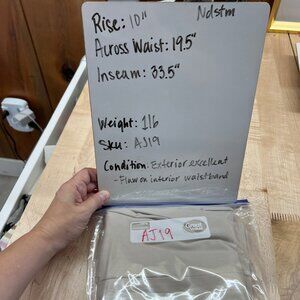 Ndstm
Rise: 10"
Across Waist: 19.5"
Inseam: 33.5"
Weight: 1lb
Sku: AJ19
Condition: Exterior excellent
- Flaw on interior waistband
Great
AJ19